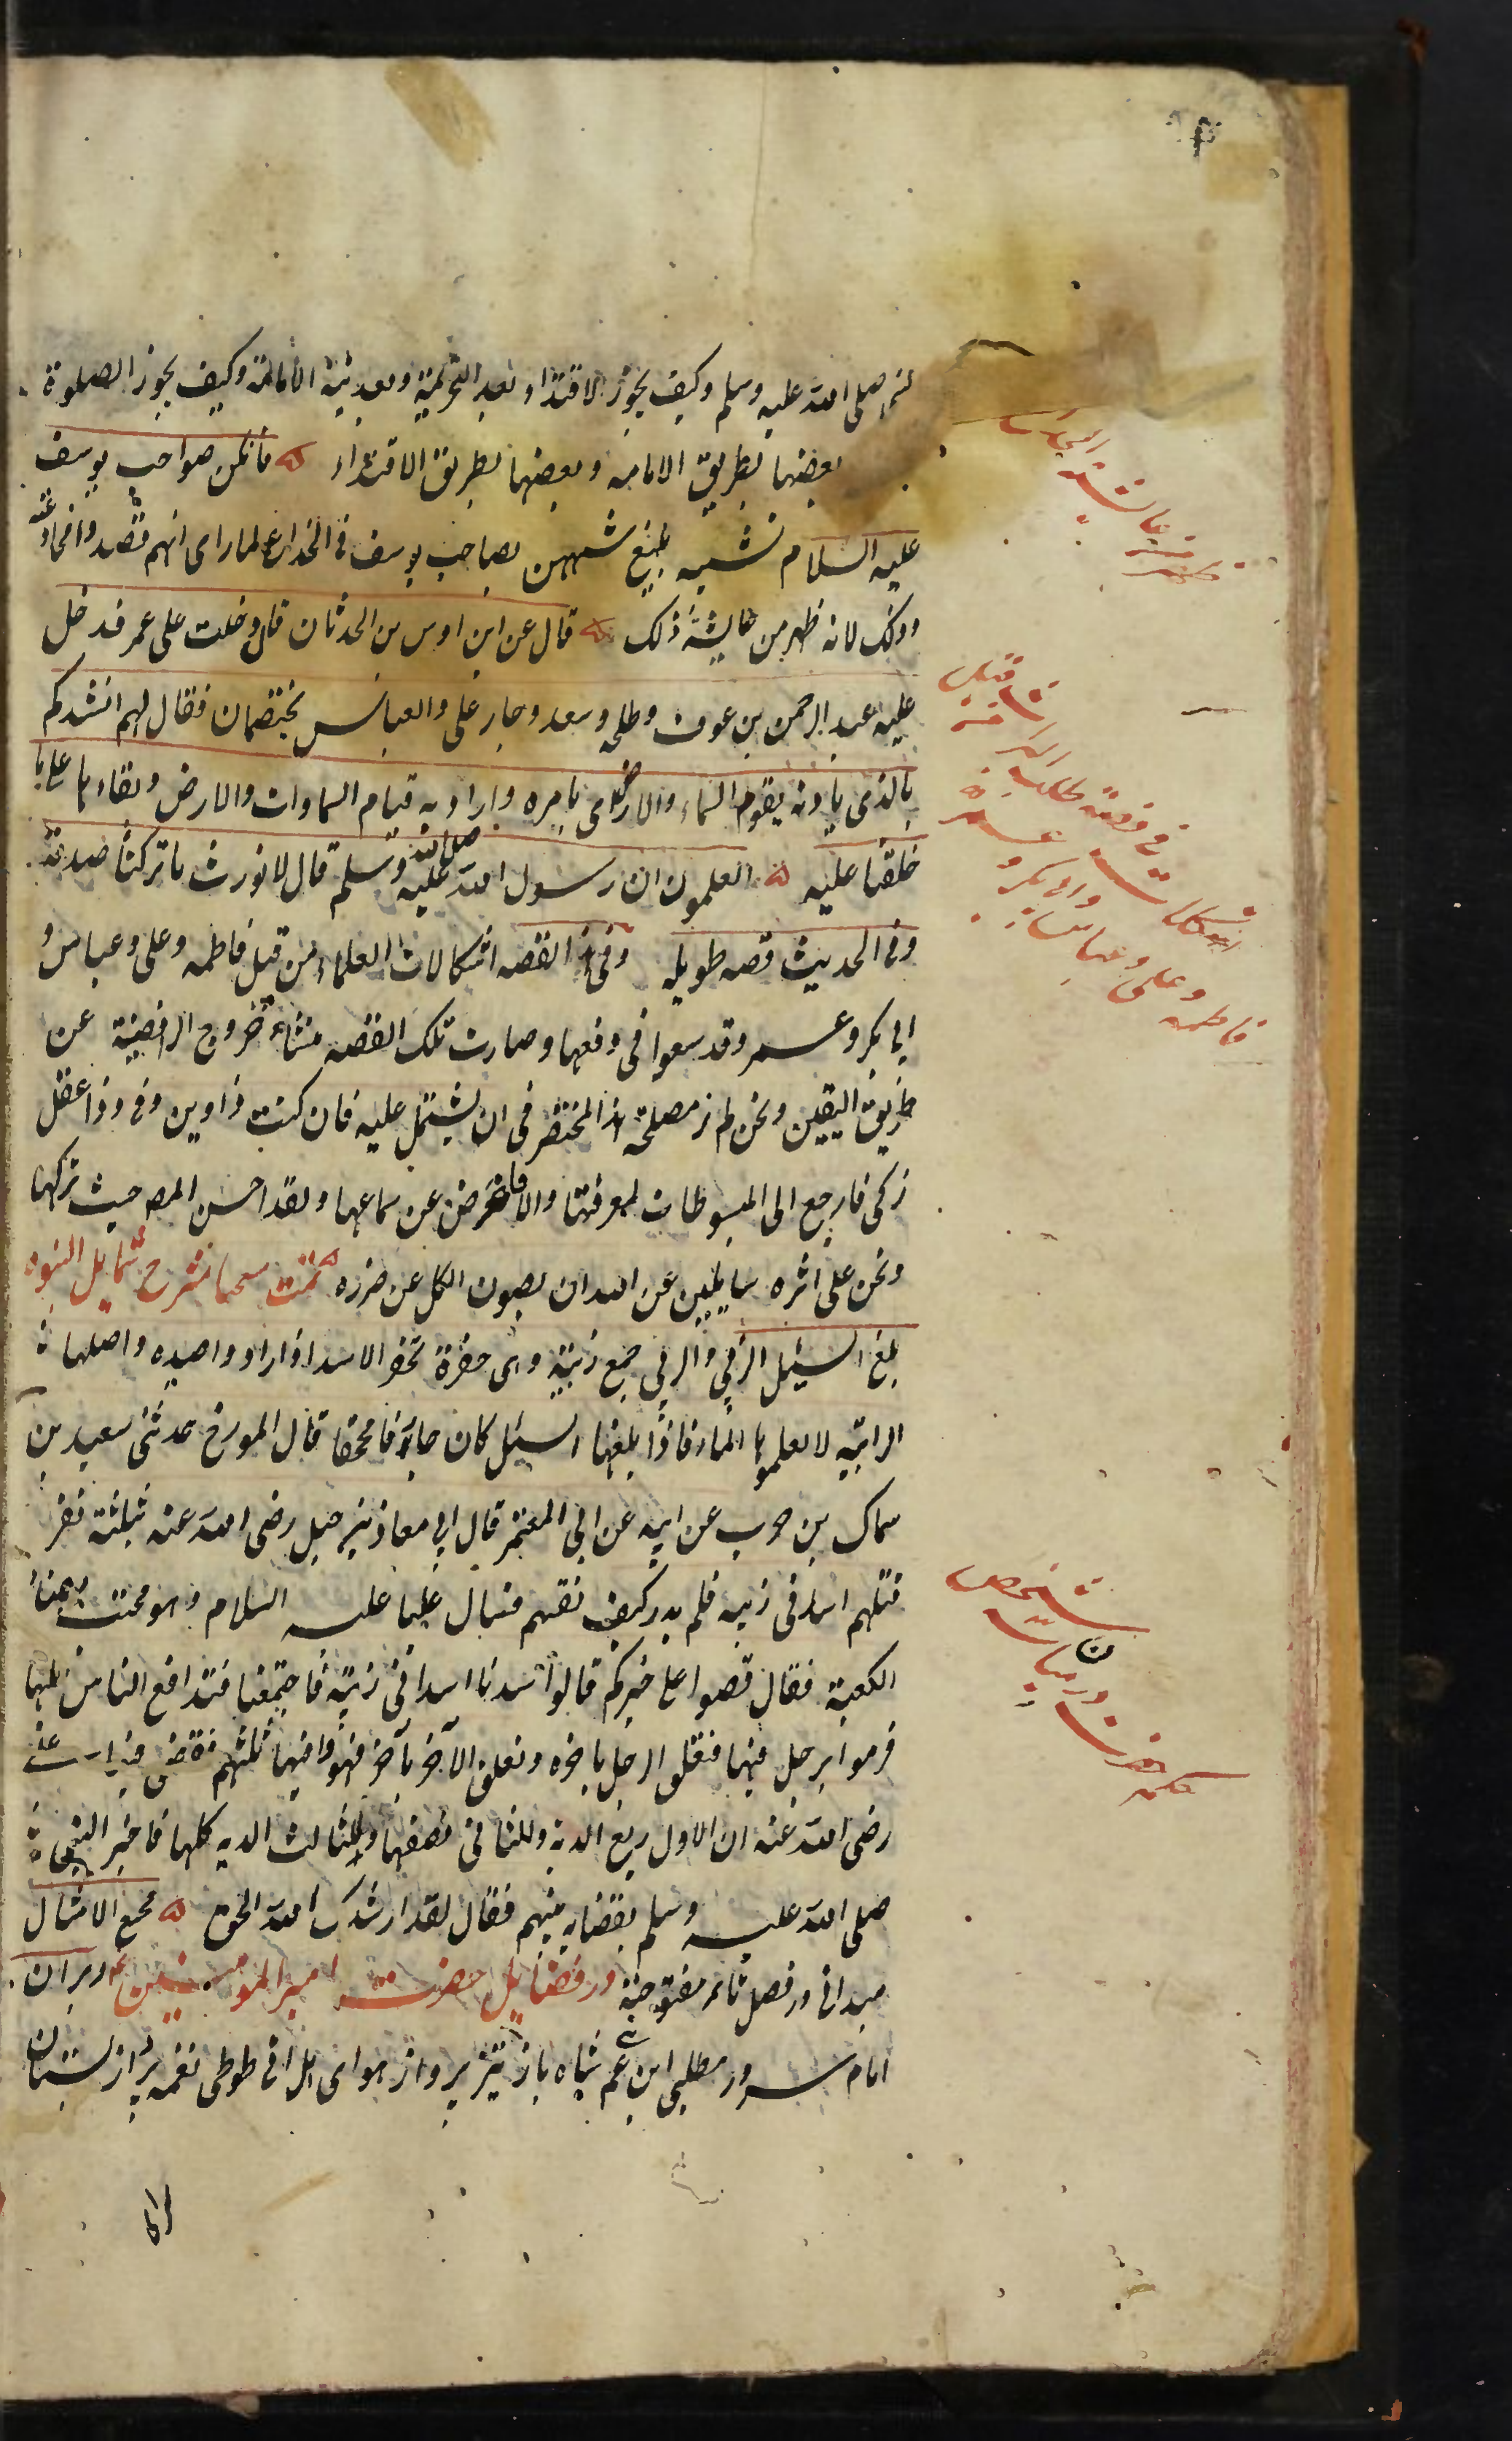 صلى الله عليه وسلم وكيف يجوز الاقتداء بعد التحريمة وبعد نية الامامة وكيف يجوز الصلوة
بعضها بطريق الامامة وبعضها بطريق الاقتداء فانكن صواحب يوسف
عليه السلام تشبيه بليغ شبههن بصاحب يوسف فى الخداع لما راى انهم
وذلك لانه ظهر من عايشة ذلك قال عن ابن اوس بن الحدثان قال دخلت على عمر فدخل
عليه عبد الرحمن بن عوف وطلحه وسعد وجاء على والعباس يختصمان فقال لهم انشدكم
بالذى باذنه يقوم السماء والارض اى بامره واراد به قيام السماوات والارض وبقاءها على ما
خلقتا عليه اتعلمون ان رسول الله صلى الله عليه وسلم قال لا نورث ما تركنا صدقة
وفى الحديث قصه طويله وفى هذا القصه اشكالات العلماء من قبل فاطمه وعلى وعباس و
ابى بكر وعمر وقد سعوا فى دفعها وصارت تلك القصه منشاء خروج الرافضية عن
طريق اليقين ونحن لم نر مصلحة هذا المختصر فى ان يشتمل عليه فان كنت ذا دين وذا عقل
زكى فارجع الى المبسوطات لمعرفتها والا فاعرض عن سماعها ولقد احسن المص حيث تركها
ونحن على اثره سايلين عن الله ان يصون الكل عن ضرره تمت شرح شمايل النبوة
بلغ السيل الزبى والزبى جمع زبية وهى حفرة تحفر الاسد اذا ارادوا صيده واصلها
الرابية لا يعلوها الماء فاذا بلغها السيل كان جارفا مجحفا قال المورخ حدثنى سعيد بن
سماك بن حرب عن ابيه عن ابى المعتمر قال اتى معاذ بن جبل رضى الله عنه بثلثة نفر
قتلهم اسد فى زبيه فلم يدر كيف يفتيهم فسال عليا عليه السلام وهو محتب بفناء
الكعبة فقال قصوا على خبركم قالوا صدنا اسدا فى زبية فاجتمعنا فتدافع الناس عليها
فرموا برجل فيها فتعلق الرجل باخره وتعلق الآخر بآخر فهووا فيها ثلثتهم فقضى فيها على
رضى الله عنه ان للاول ربع الدية وللثانى نصفها وللثالث الديه كلها فاخبر النبى
صلى الله عليه وسلم بقضايه فيهم فقال لقد ارشدك الله الحق مجمع الامثال
ميدانى در فصل ثاء مفتوحة در فضايل حضرت امير المومنين ع در بيان
امام سرور مطلبى ابن عم شاه باز تيز پرواز هواى هل اتى طوطى نغمه پرداز بستان
انما
عايشة
فى قصة طلب
اشكالات
وابى بكر وعمر
فاطمه وعلى وعباس
حكم حضرت در باب